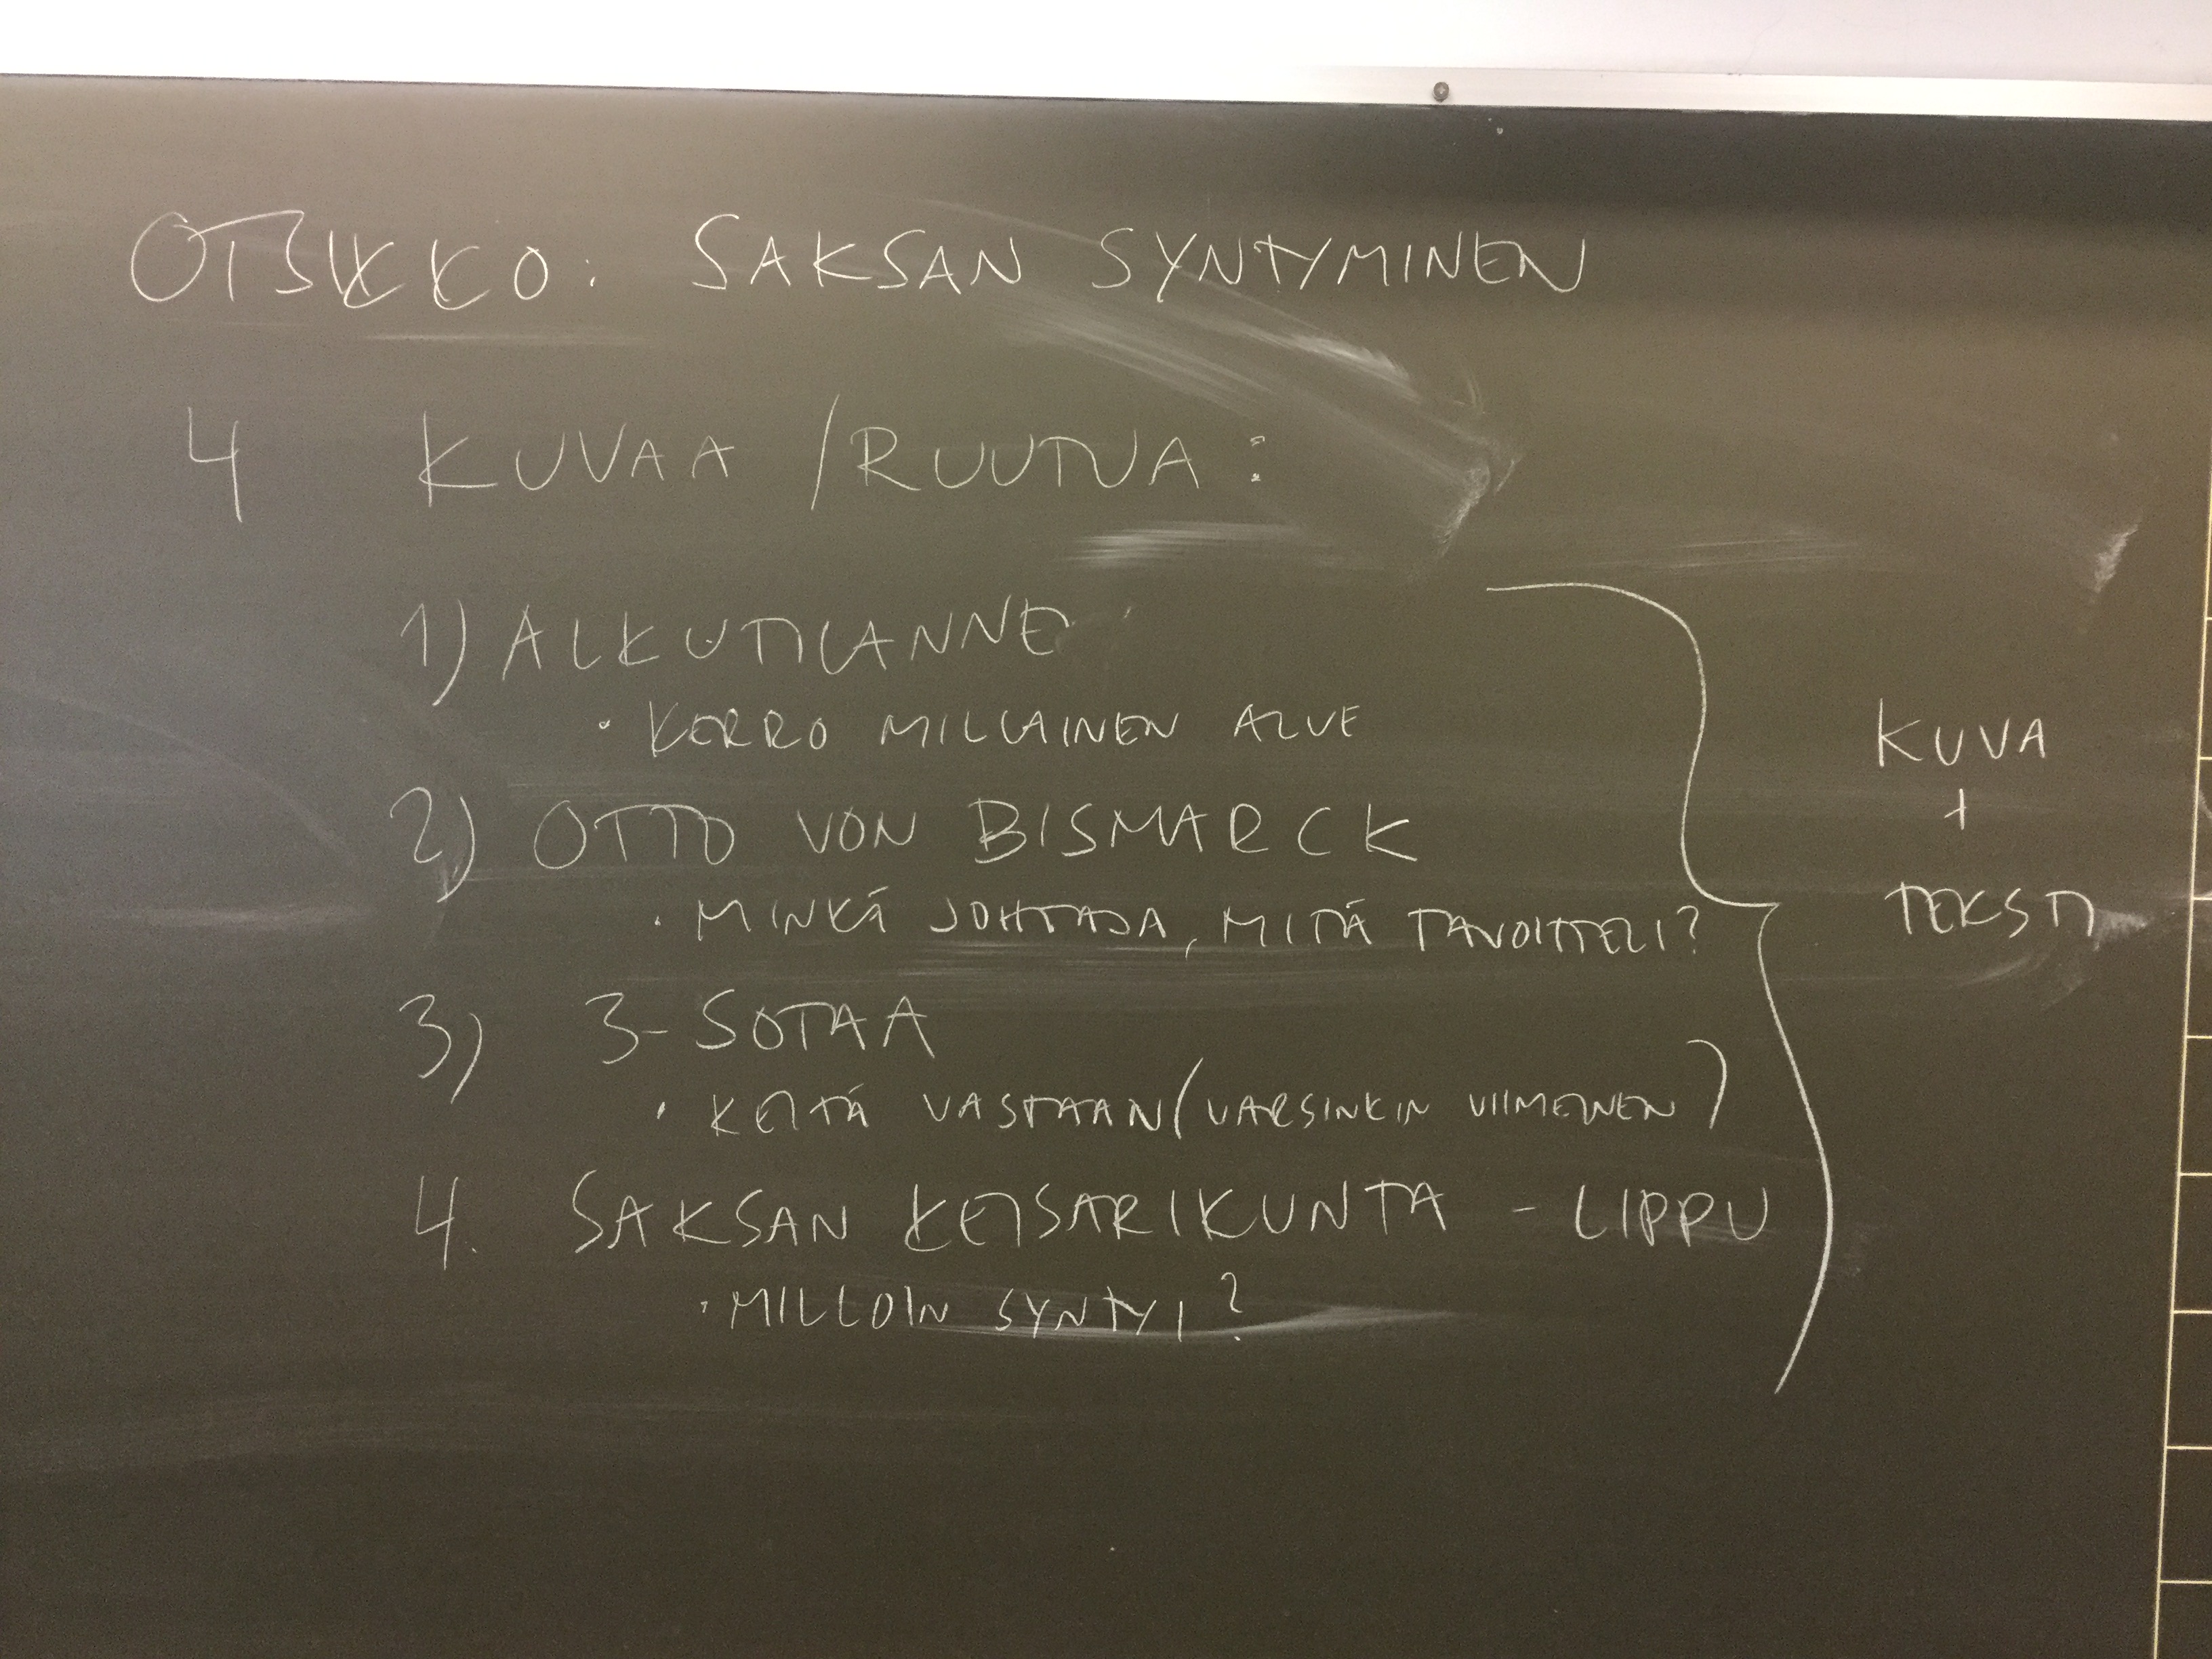 OTSIKKO: SAKSAN SYNTYMINEN
4 KUVAA / RUUTUA:
1) ALKUTILANNE
• KERRO MILLAINEN ALUE
2) OTTO VON BISMARCK
• MINKÄ JOHTAJA, MITÄ TAVOITTELI?
3) 3-SOTAA
• KEITÄ VASTAAN (VARSINKIN VIIMEINEN)
4. SAKSAN KEISARIKUNTA - LIPPU
• MILLOIN SYNTYI?
KUVA
+
TEKSTI